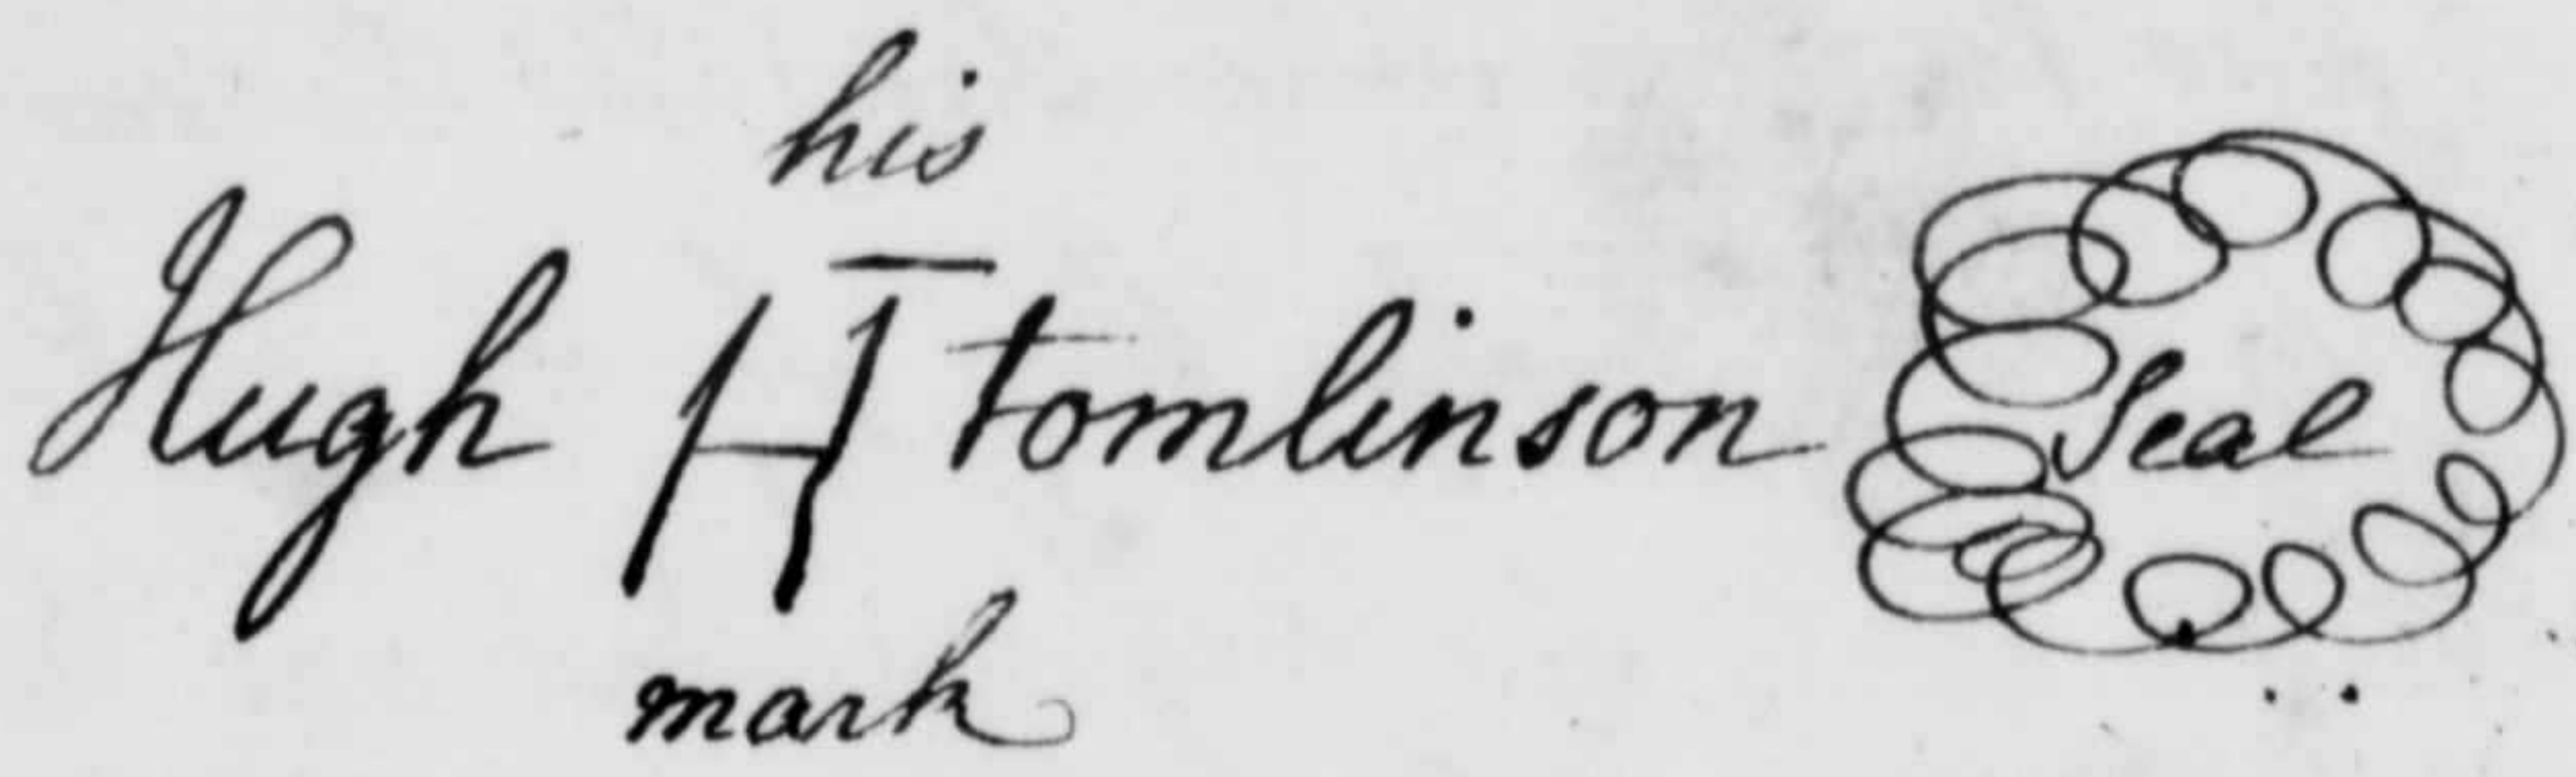 his
Hugh H tomlinson Seal
mark